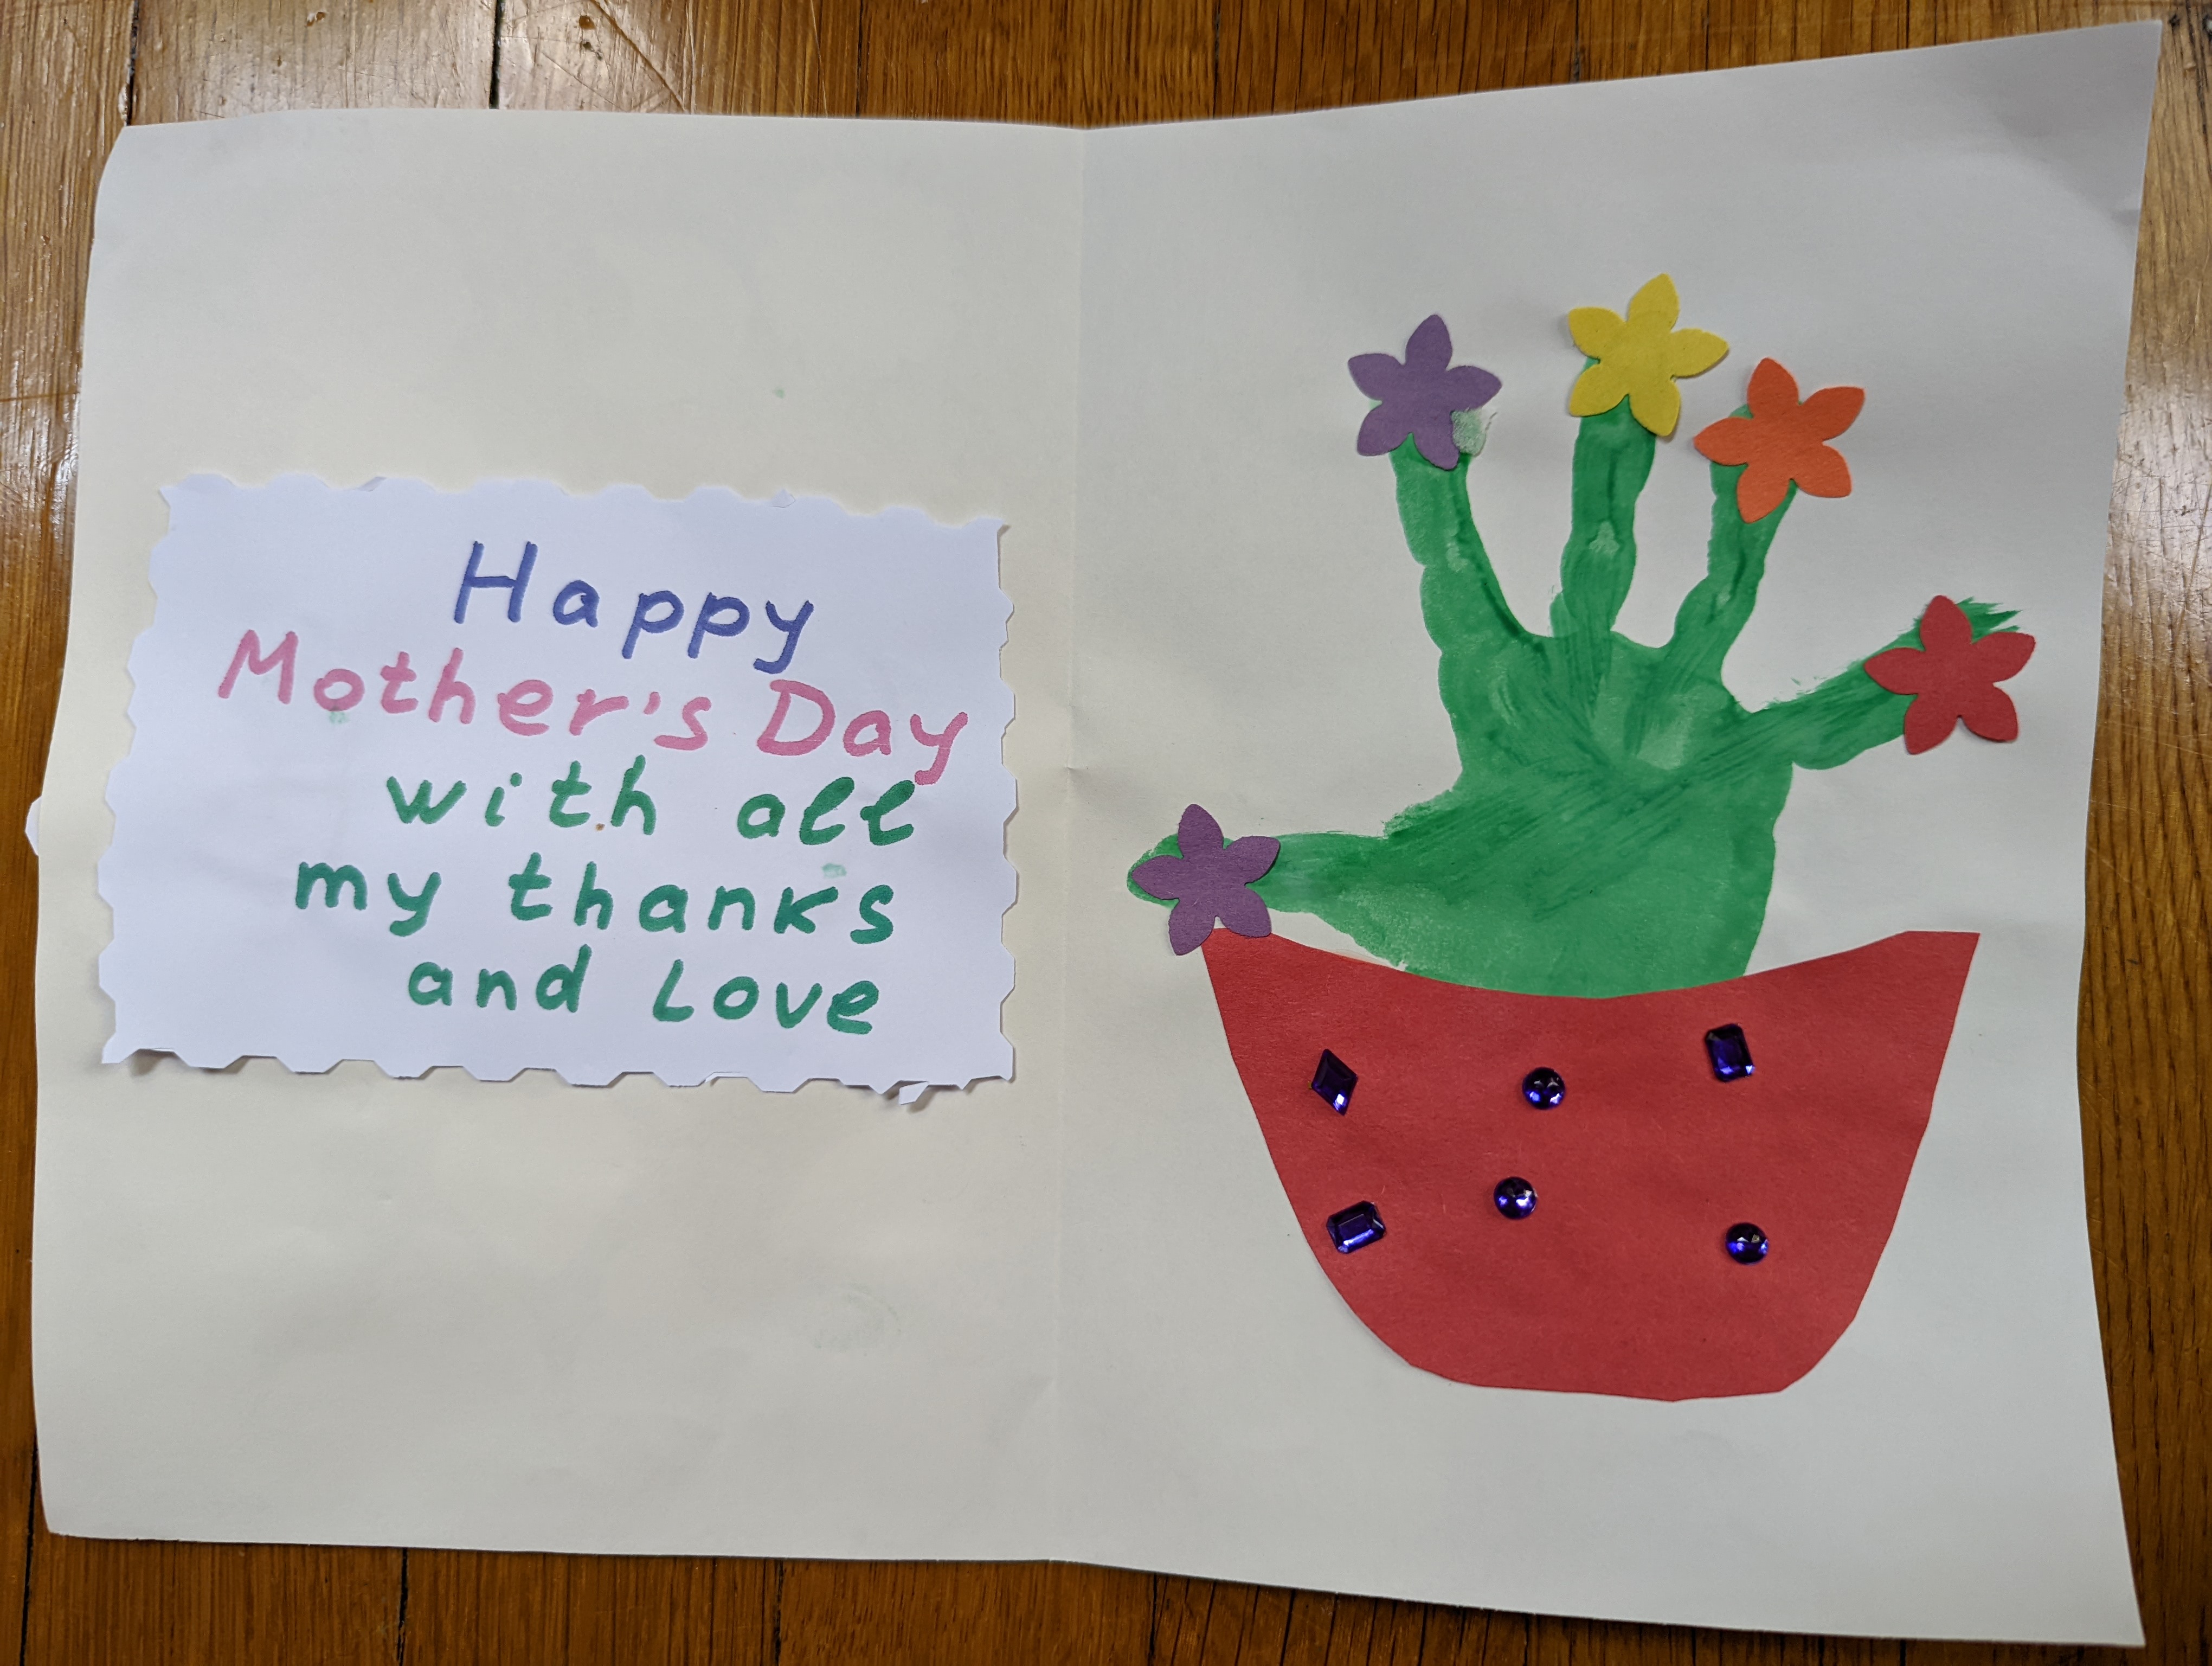 Happy
Mother's Day
with all
my thanks
and Love